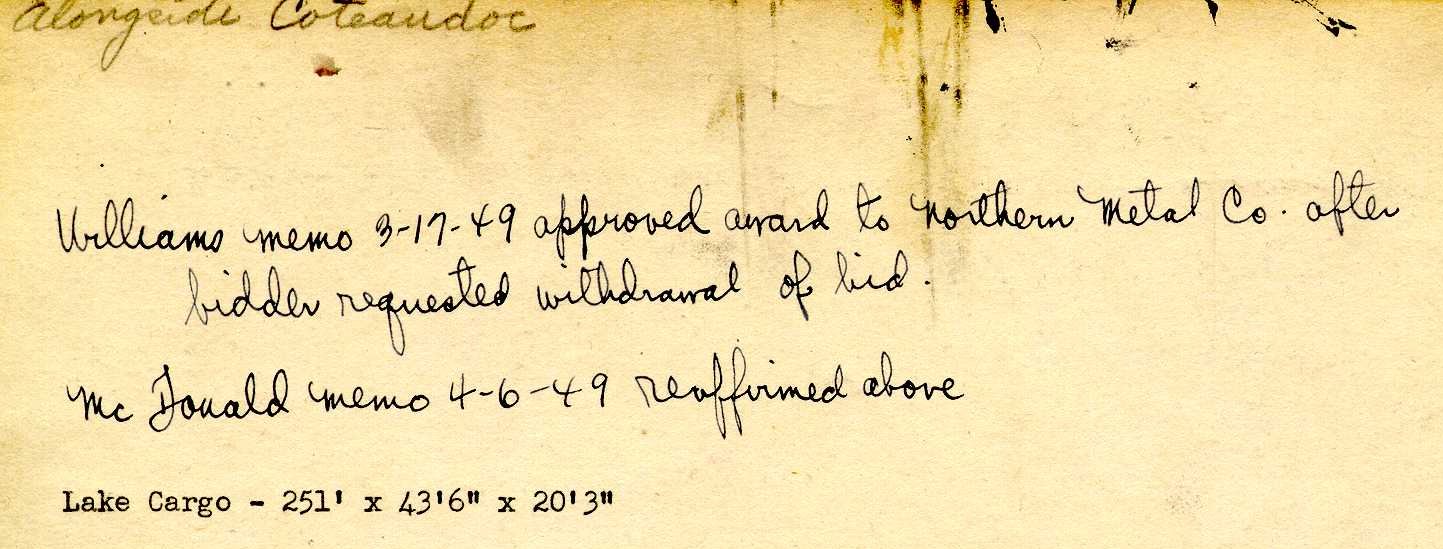 alongside Coteaudoc
Williams memo 3-17-49 approved award to Northern Metal Co. after
bidder requested withdrawal of bid.
Mc Donald memo 4-6-49 reaffirmed above
Lake Cargo - 251' x 43'6" x 20'3"